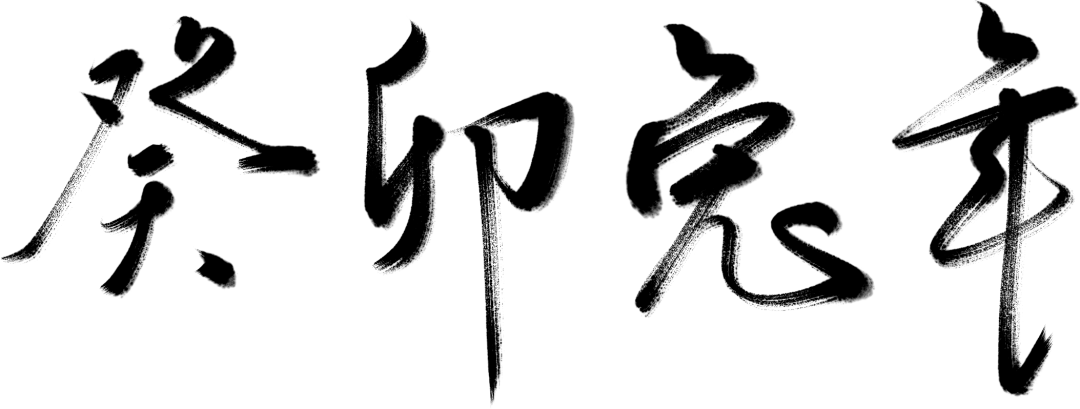 癸卯兔年